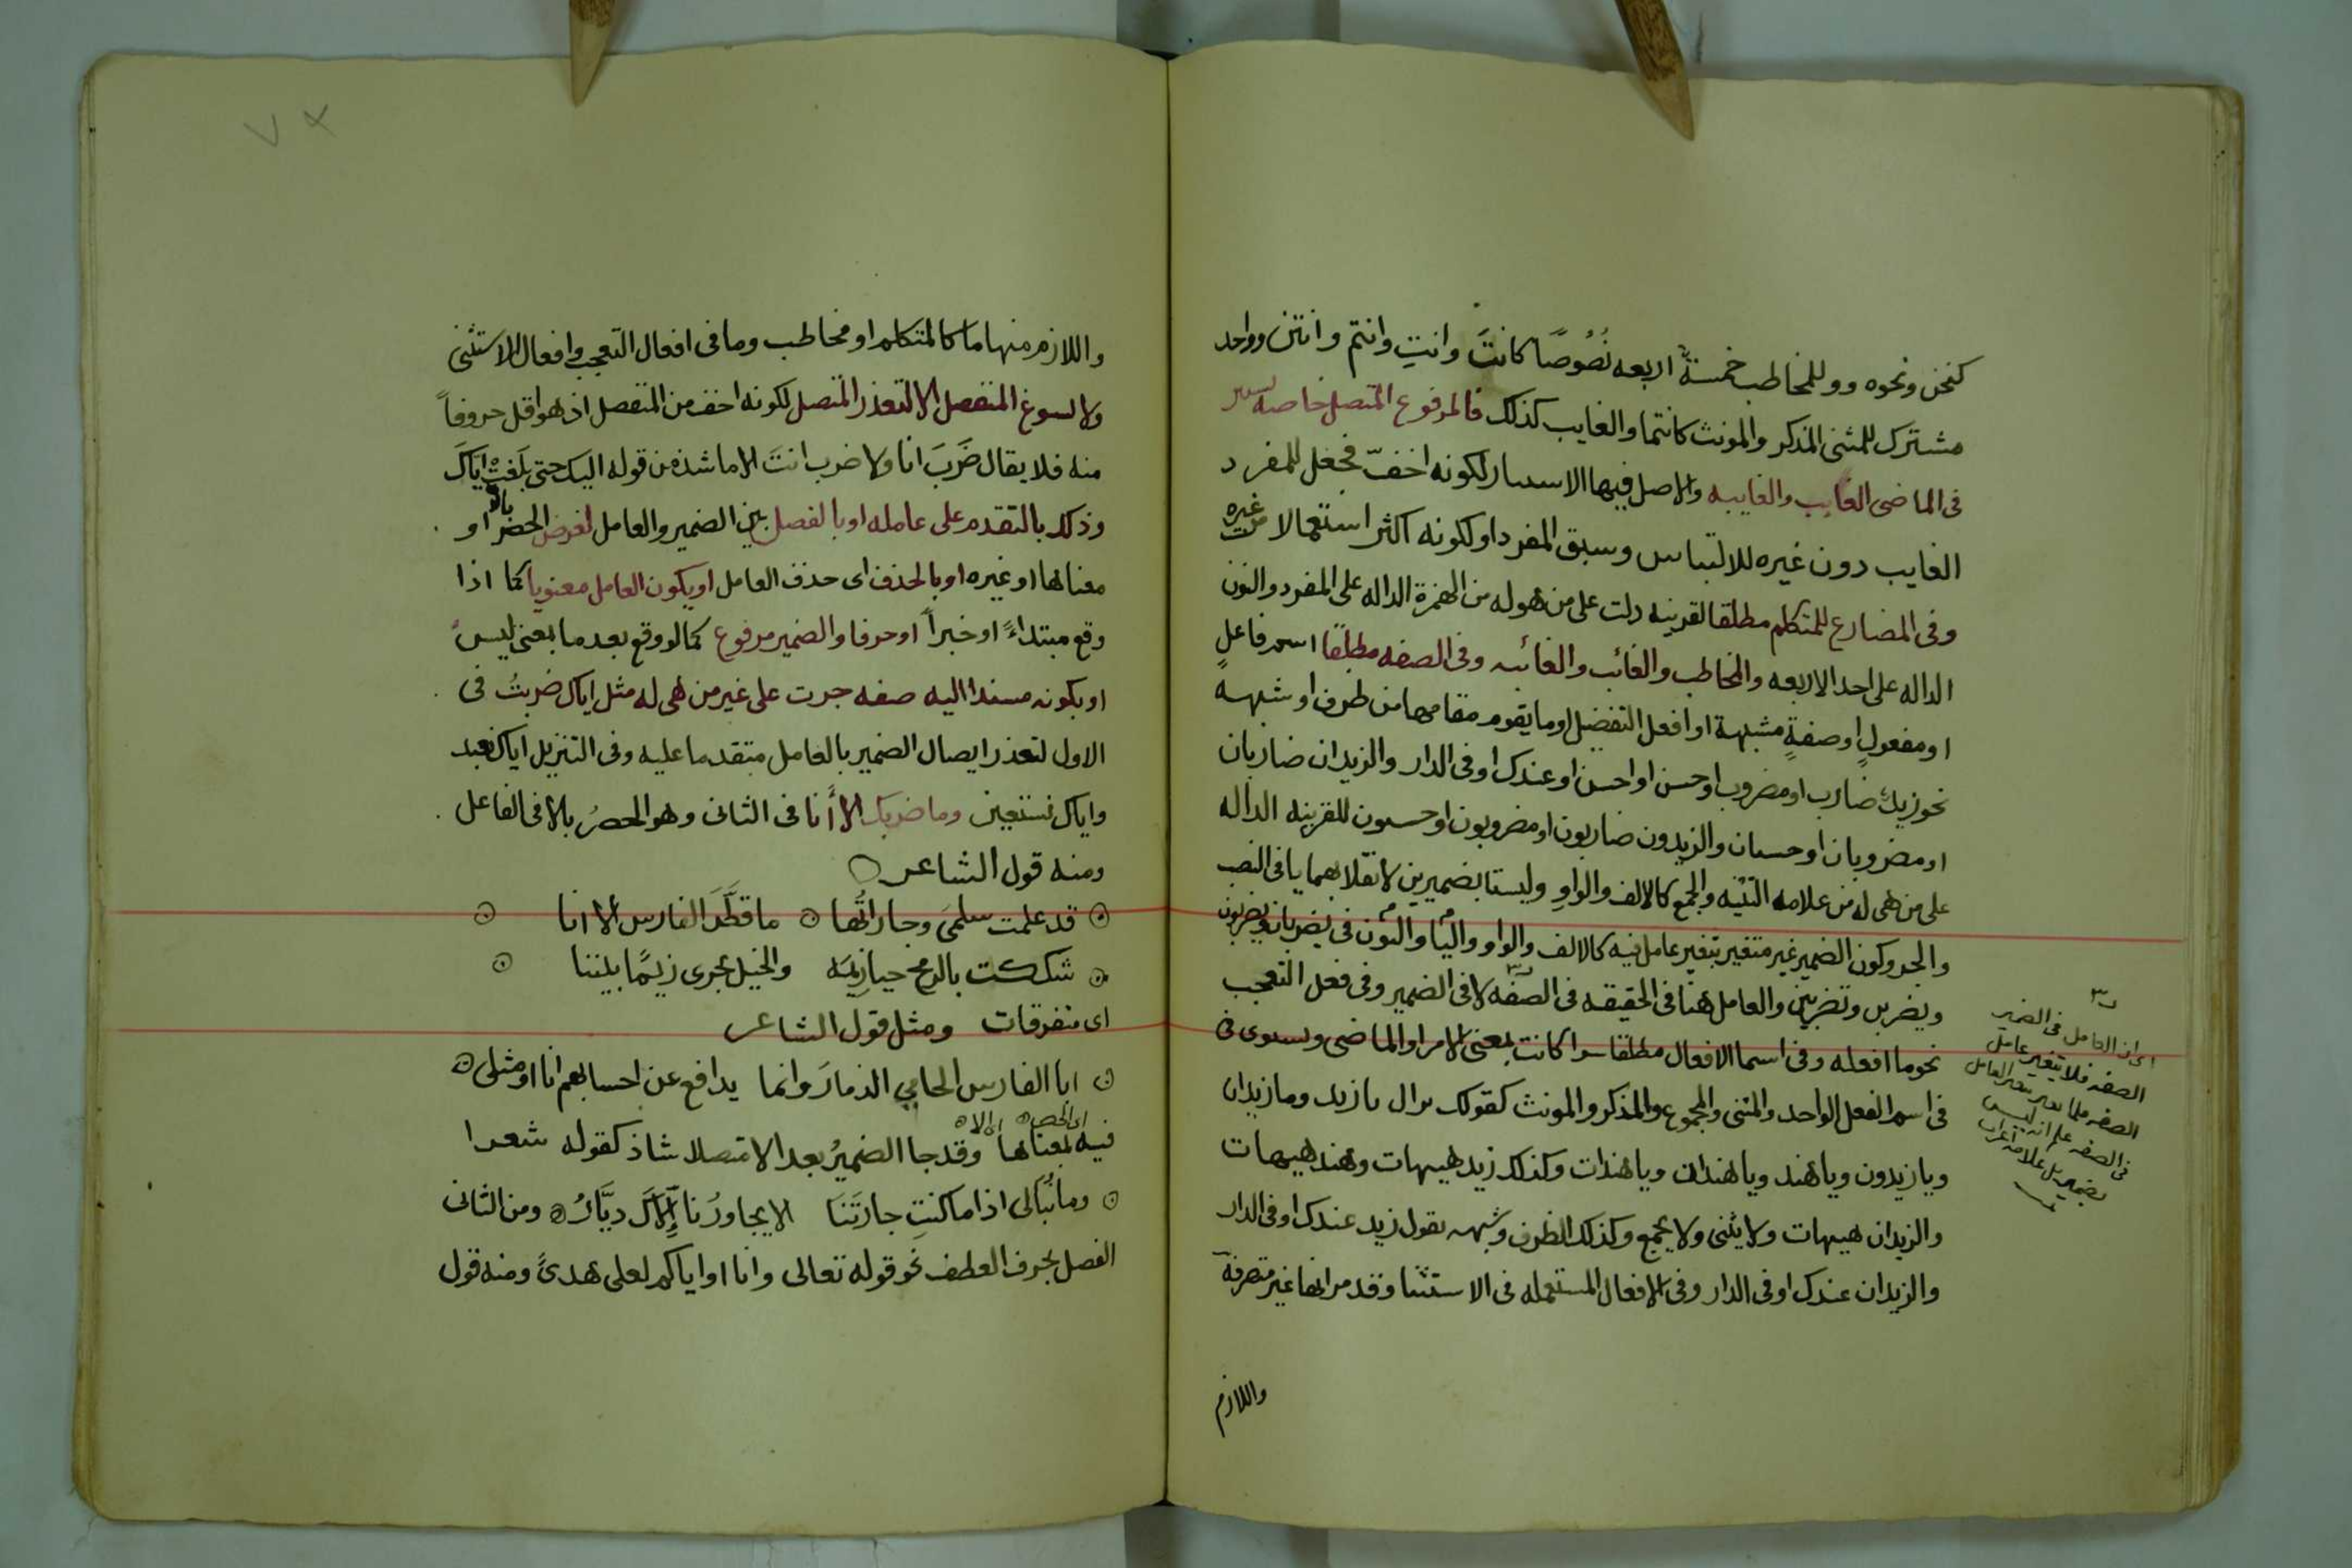 كنحن ونحوه وو للمخاطب خمسةٌ اربعه نُصُوصًا كانتَ وانتِ وانتم وانتن وواحد
مشترك للمثنى المذكر والمونث كانتما والغايب كذلك فالمرفوع المتصل خاصه يستتر
فى الماضى الغايب والغايبه والاصل فيها الاستتار لكونه اخفّ فجعل للمفرد
الغايب دون غيره للالتباس وسبق المفرد او لكونه اكثر استعمالا من غيره
وفى المضارع للمتكلم مطلقا لقرينه دلت على من هو له من الهمزة الداله على المفرد والنون
الداله على احد الاربعه والمخاطب والغائب والغائبه وفى الصفه مطلقًا اسم فاعلٍ
او مفعولٍ او صفةٍ مشبهة او افعل التفضيل او ما يقوم مقامها من ظرف او شبهه
نحو زيدٌ ضارب او مضروب او حسن او احسن او عندك او فى الدار والزيدان ضاربان
او مضروبان او حسنان والزيدون ضاربون او مضروبون او حسنون للقرينه الداله
على من هى له من علامه التثنيه والجمع كالالف والواوِ وليستا بضميرين لانقلابهما يا فى النصب
والجر وكون الضمير غير متغير بتغير عامل فيه كالالف والواو واليا والنون فى يضربان ويضربون
ويضربن وتضربين والعامل هنا فى الحقيقه فى الصفه لا فى الضمير وفى فعل التعجب
نحو ما افعله وفى اسما الافعال مطلقا سوا كانت بمعنى الامر او الماضى ويستوى فى
فى اسم الفعل الواحد والمثنى والمجموع والمذكر والمونث كقولك نزال يا زيد ويا زيدان
ويا زيدون ويا هند ويا هندان ويا هندات وكذلك زيد هيهات وهند هيهات
والزيدان هيهات ولا يثنى ولا يجمع وكذلك الظرف وشبهه تقول زيد عندك او فى الدار
والزيدان عندك او فى الدار وفى الافعال المستعمله فى الاستثنا وقد مر انها غير متصرفة
واللازم
اى ان العامل فى الضمير
الصفه فلا يتغير عامل
الصفه فلما تغير بتغير العامل
فى الصفه علم انه ليس
بضمير بل علامة اعراب
واللازم منها ما كالمتكلم او مخاطب وما فى افعال التعجب وافعال الاستثنى
ولا يسوغ المنفصل الا لتعذر المتصل لكونه اخف من المنفصل اذ هو اقل حروفاً
منه فلا يقال ضَرَبَ انا ولا ضرب انتَ الا ما شذ من قوله اليك حتى بَلَغتْ اياكَ
وذلك بالتقدم على عامله او بالفصل بين الضمير والعامل لغرض الحصر بالا او
معناها او غيره او بالحذف اى حذف العامل او يكون العامل معنويا كما اذا
وقع مبتداءً او خبراً او حرفا والضمير مرفوع كما لو وقع بعد ما بمعنى ليس
او بكونه مسندا اليه صفه جرت على غير من هى له مثل اياك ضربتُ فى
الاول لتعذر ايصال الضمير بالعامل متقدما عليه وفى التنزيل اياك نعبد
واياك نستعين وما ضربك الا أنا فى الثانى وهو الحصرُ بالا فى الفاعل
ومنه قول الشاعر
قد علمت سلمىَ وجاراتُها ما قطَّرَ الفارس الا انا
شككت بالرمح حيازيمَه والخيل تجرى زيَمًا بيننا
اى متفرقات ومثل قول الشاعر
انا الفارس الحامي الذمارَ وانما يدافع عن احسابهم انا او مثلى
اى الحصر اى الا
فيه لمعناها وقد جا الضميرُ بعد الا متصلا شاذ كقوله شعرا
وما نُبالى اذا ما كنتِ جارتَنا الا يجاورُنا إلاَّكَ ديَّارُ ومن الثانى
الفصل بحرف العطف نحو قوله تعالى وانا او اياكم لعلى هدىً ومنه قول